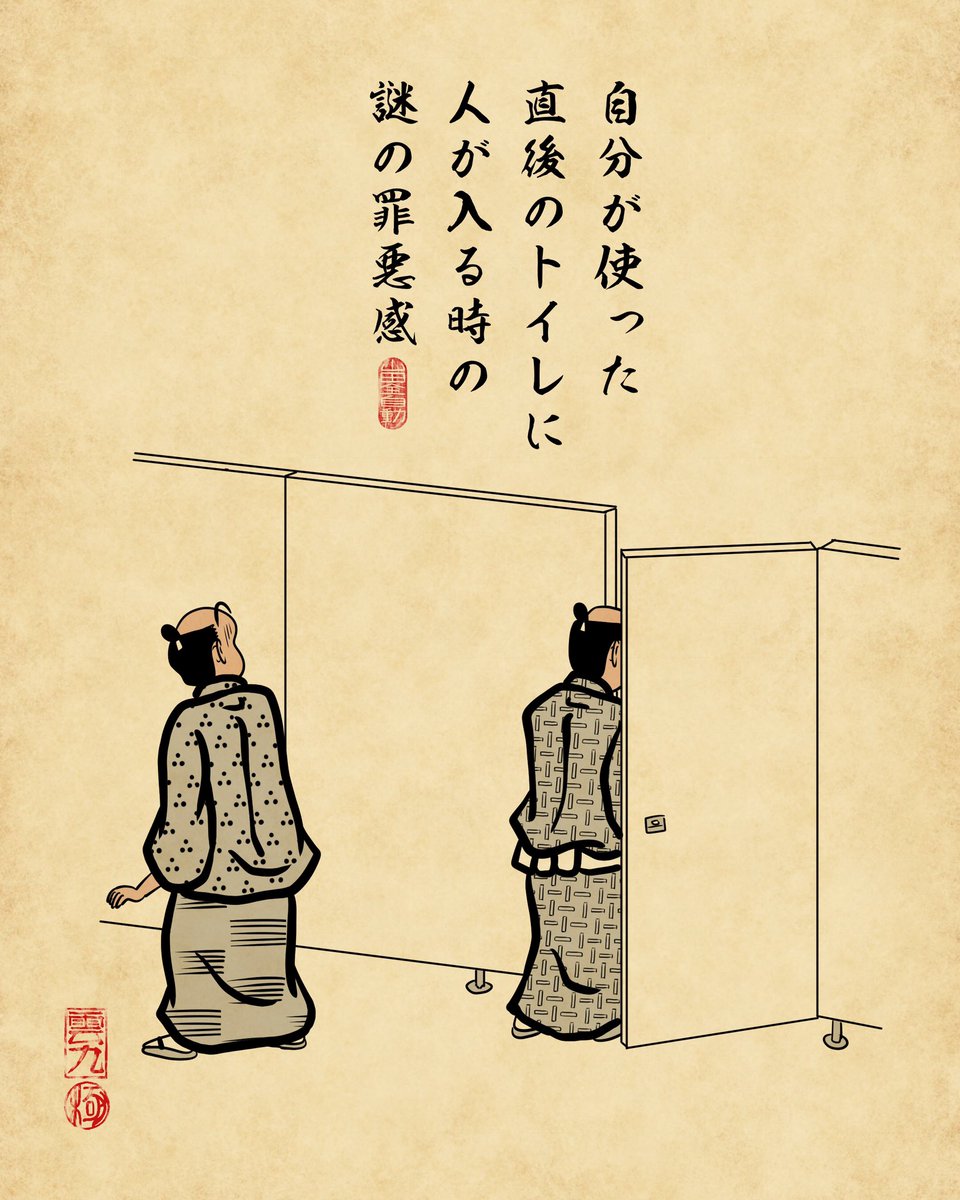 自分が使った
直後のトイレに
人が入る時の
謎の罪悪感